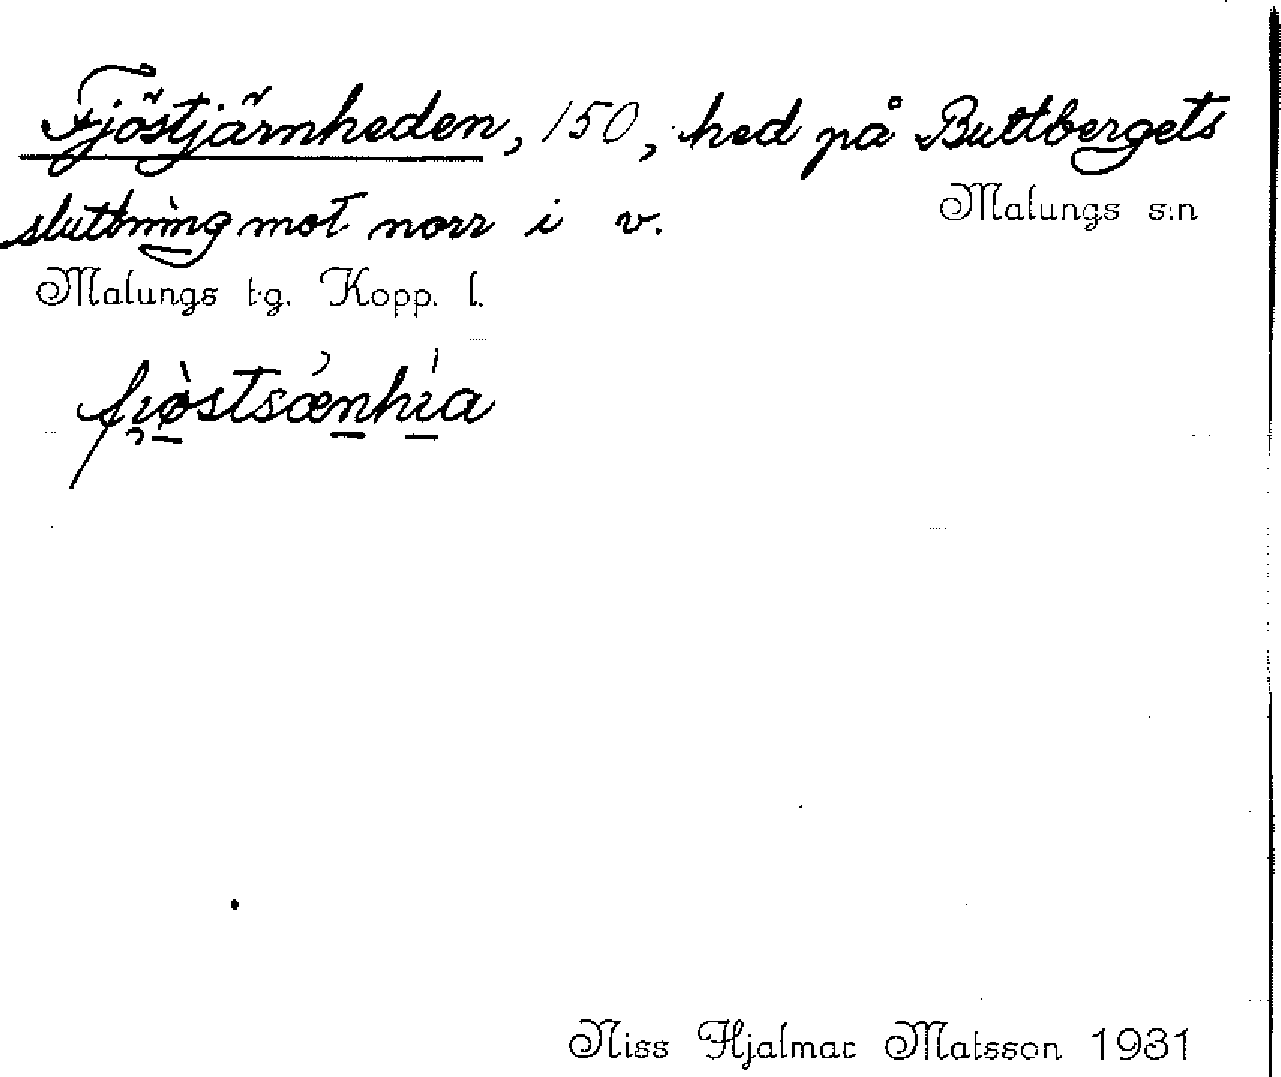 Fjöstjärnheden, 150, hed på Buttbergets
Malungs s:n
sluttning mot norr i v.
Malungs t.g. Kopp. l.
fi̯østsǽnhía
Niss Hjalmar Matsson 1931